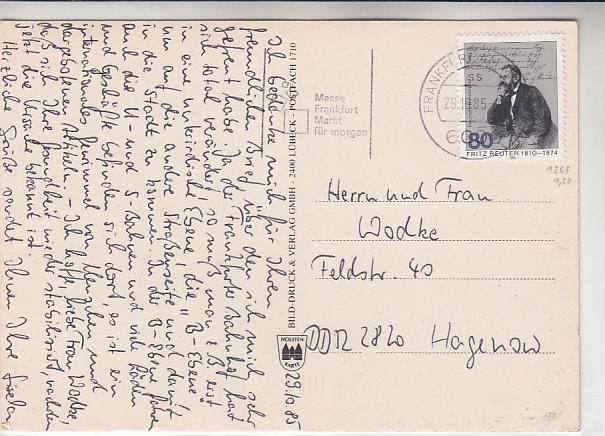 Ich bedanke mich für Ihren
freundlichen Brief, über den ich mich sehr
gefreut habe. Ja der Frankfurter Bahnhof hat
sich total verändert, so muß man z.B. erst
in eine unterirdische Ebene, die "B-Ebene"
um auf die andre Straßenseite und damit
in die Stadt zu kommen. In der B-Ebene fahren
auch die U- und S-Bahnen und viele Läden
und Geschäfte befinden sich dort, es ist ein
internationales Gewimmel von Menschen und
dargebotenen Artikeln. - Ich hoffe, liebe Frau Wodke,
daß sich Ihre Gesundheit wieder stabilisiert nachdem
jetzt die Ursache bekannt ist.
Herzliche Grüße sendet Ihnen Ihre Gisela
29.10.85
BILD-DRUCK & VERLAG GMBH - 2400 LÜBECK - POSTFACH 1710
HOLSTEN
KARTE
Messe
Frankfurt
Markt
für morgen
FRANKFURT
ss
28.10.85
80
FRITZ REUTER 1810-1874
1263
1,20
Herrn und Frau
Wodke
Feldstr. 40
DDR 2820 Hagenow